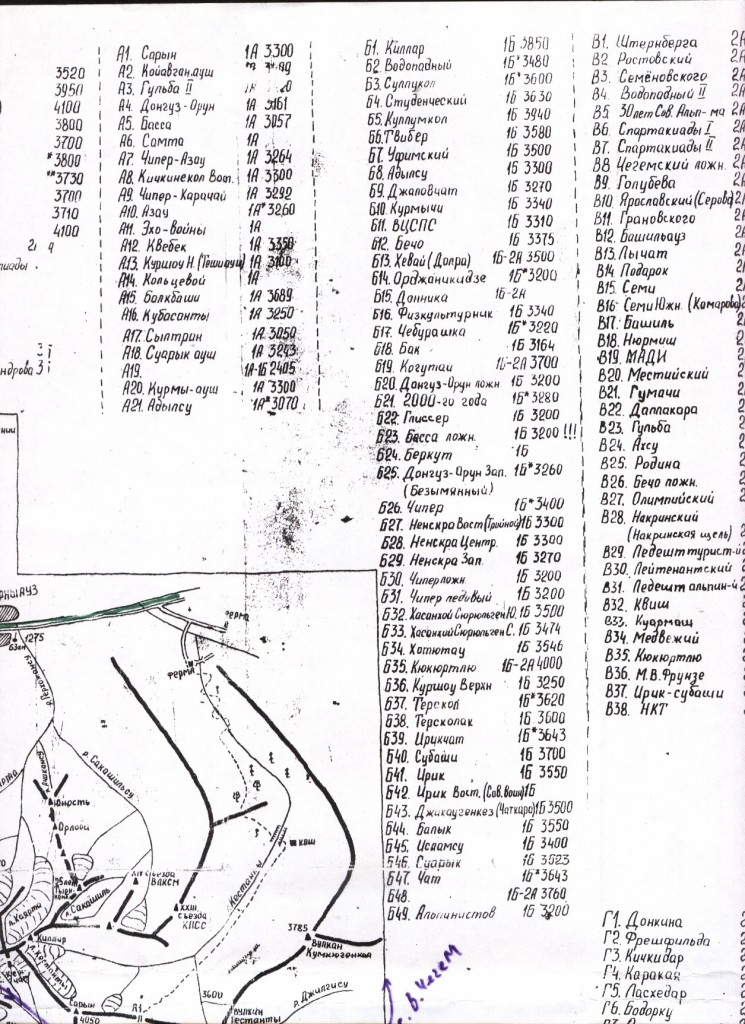 3520
3950
4100
3800
3700
*3800
**3730
3700
3710
4100
А1. Сарын 1А 3300
А2. Койавган.ауш
А3. Гульба II
А4. Донгуз-Орун 1А 3161
А5. Басса 1А 3057
А6. Самта 1А
А7. Чипер-Азау 1А 3264
А8. Кичкинекол Вост. 1А 3300
А9. Чипер-Карачай 1А 3292
А10. Азау 1А*3260
А11. Эхо-войны 1А
А12. Квебек 1А 3350
А13. Куршоу Н. 1А 3100
А14. Кольцевой 1А
А15. Болкбаши 1А 3689
А16. Кубасанты 1А 3250
А17. Сылтрин 1А 3050
А18. Суарык ауш 1А 3243
А19. 1А-1Б 2405
А20. Курмы-ауш 1А 3300
А21. Адылсу 1А*3070
Б1. Киллар 1Б 3850
Б2. Водопадный 1Б*3480
Б3. Суллукол 1Б*3600
Б4. Студенческий 1Б 3630
Б5. Куллумкол 1Б 3940
Б6. Твибер 1Б 3580
Б7. Уфимский 1Б 3500
Б8. Адылсу 1Б 3300
Б9. Джаловчат 1Б 3270
Б10. Курмычи 1Б 3340
Б11. ВЦСПС 1Б 3310
Б12. Бечо 1Б 3375
Б13. Хевай (Долра) 1Б-2А 3500
Б14. Орджаникидзе 1Б*3200
Б15. Донника 1Б-2А
Б16. Физкультурник 1Б 3340
Б17. Чебурашка 1Б*3220
Б18. Бак 1Б 3164
Б19. Когутай 1Б-2А 3700
Б20. Донгуз-Орун ложн 1Б 3200
Б21. 2000-го года 1Б*3280
Б22. Глиссер 1Б 3200
Б23. Басса ложн. 1Б 3200 !!!
Б24. Беркут 1Б
Б25. Донгуз-Орун Зап. 1Б*3260
(Безымянный)
Б26. Чипер 1Б*3400
Б27. Ненскра Вост (Тройной) 1Б 3300
Б28. Ненскра Центр. 1Б 3300
Б29. Ненскра Зап. 1Б 3270
Б30. Чипер ложн. 1Б 3200
Б31. Чипер ледовый 1Б 3200
Б32. Хасанкой Сюрюльген Ю. 1Б 3500
Б33. Хасанкой Сюрюльген С. 1Б 3474
Б34. Хотютау 1Б 3546
Б35. Кюкюртлю 1Б-2А 4000
Б36. Куршоу Верхн 1Б 3250
Б37. Терскол 1Б*3620
Б38. Терсколак 1Б 3600
Б39. Ирикчат 1Б*3643
Б40. Субаши 1Б 3700
Б41. Ирик 1Б 3550
Б42. Ирик Вост. (Сов. воин) 1Б
Б43. Джикаугенкез (Чаткара) 1Б 3500
Б44. Балык 1Б 3550
Б45. Исламсу 1Б 3400
Б46. Суарык 1Б 3523
Б47. Чат 1Б*3643
Б48. 1Б-2А 3760
Б49. Альпинистов 1Б 3200
В1. Штернберга 2А
В2. Ростовский 2А
В3. Семёновского 2А
В4. Водопадный II 2А
В5. 30 лет Сов. Альп-ма 2А
В6. Спартакиады I
В7. Спартакиады II
В8. Чегемский ложн.
В9. Голубева
В10. Ярославский (Серова)
В11. Грановского
В12. Башильауз
В13. Лычат
В14. Подарок
В15. Семи
В16. Семи Южн. (Комарова)
В17. Башиль
В18. Нюрмиш
В19. МАДИ
В20. Местийский
В21. Гумачи
В22. Даллакора
В23. Гульба
В24. Ахсу
В25. Родина
В26. Бечо ложн.
В27. Олимпийский
В28. Накринский
(Накринская щель)
В29. Ледешт турист-й
В30. Лейтенантский
В31. Ледешт альпин-й
В32. Квиш
В33. Куармаш
В34. Медвежий
В35. Кюкюртлю
В36. М.В.Фрунзе
В37. Ирик-субаши
В38. НКТ
Г1. Донкина
Г2. Фрешфильда
Г3. Кичкидар
Г4. Каракая
Г5. Ласхедар
Г6. Бодорку
НЫАУЗ
1275
ферма
ферма
р. Сакашильсу
Юность
Орлова
XIV съезда
ВЛКСМ
л. Сакашиль
XXIII
съезда
КПСС
Киллар
Сарын
4050
А1
кош
Кестанты
3785
Вулкан
Кумтюгенкая
3600
р. Джилгису
Вулкан
Кестанты
с. В. Чегем